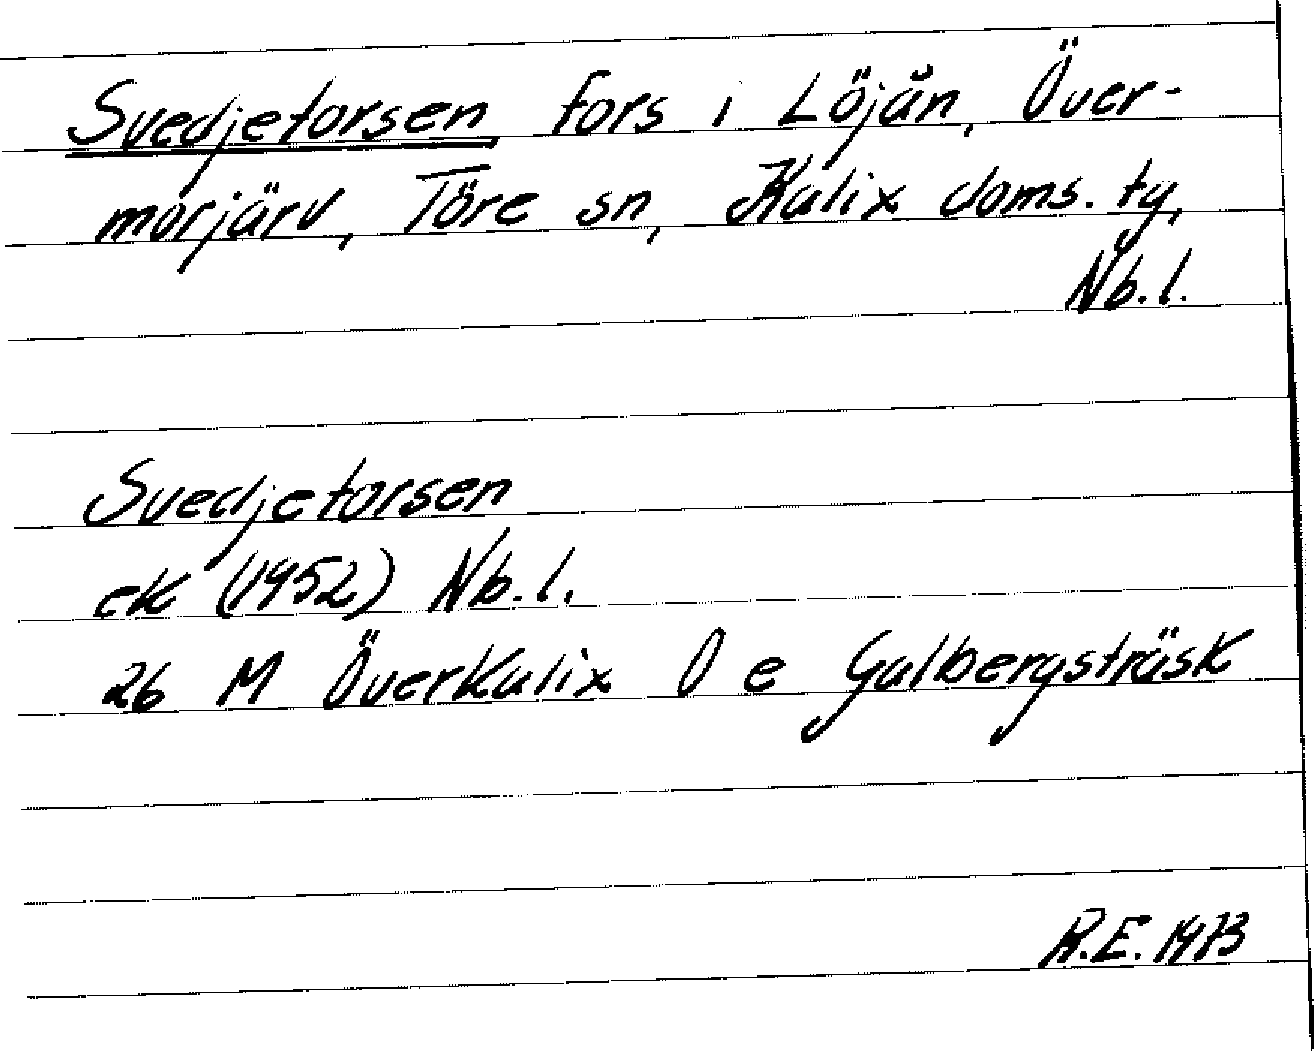 Svedjeforsen, fors i Löjån, Över-
morjärv, Töre sn, Kalix doms. tg,
Nb. l.
Svedjeforsen
ek (1952) Nb. l.
26 M Överkalix O e Galbergsträsk
R.E. 1973